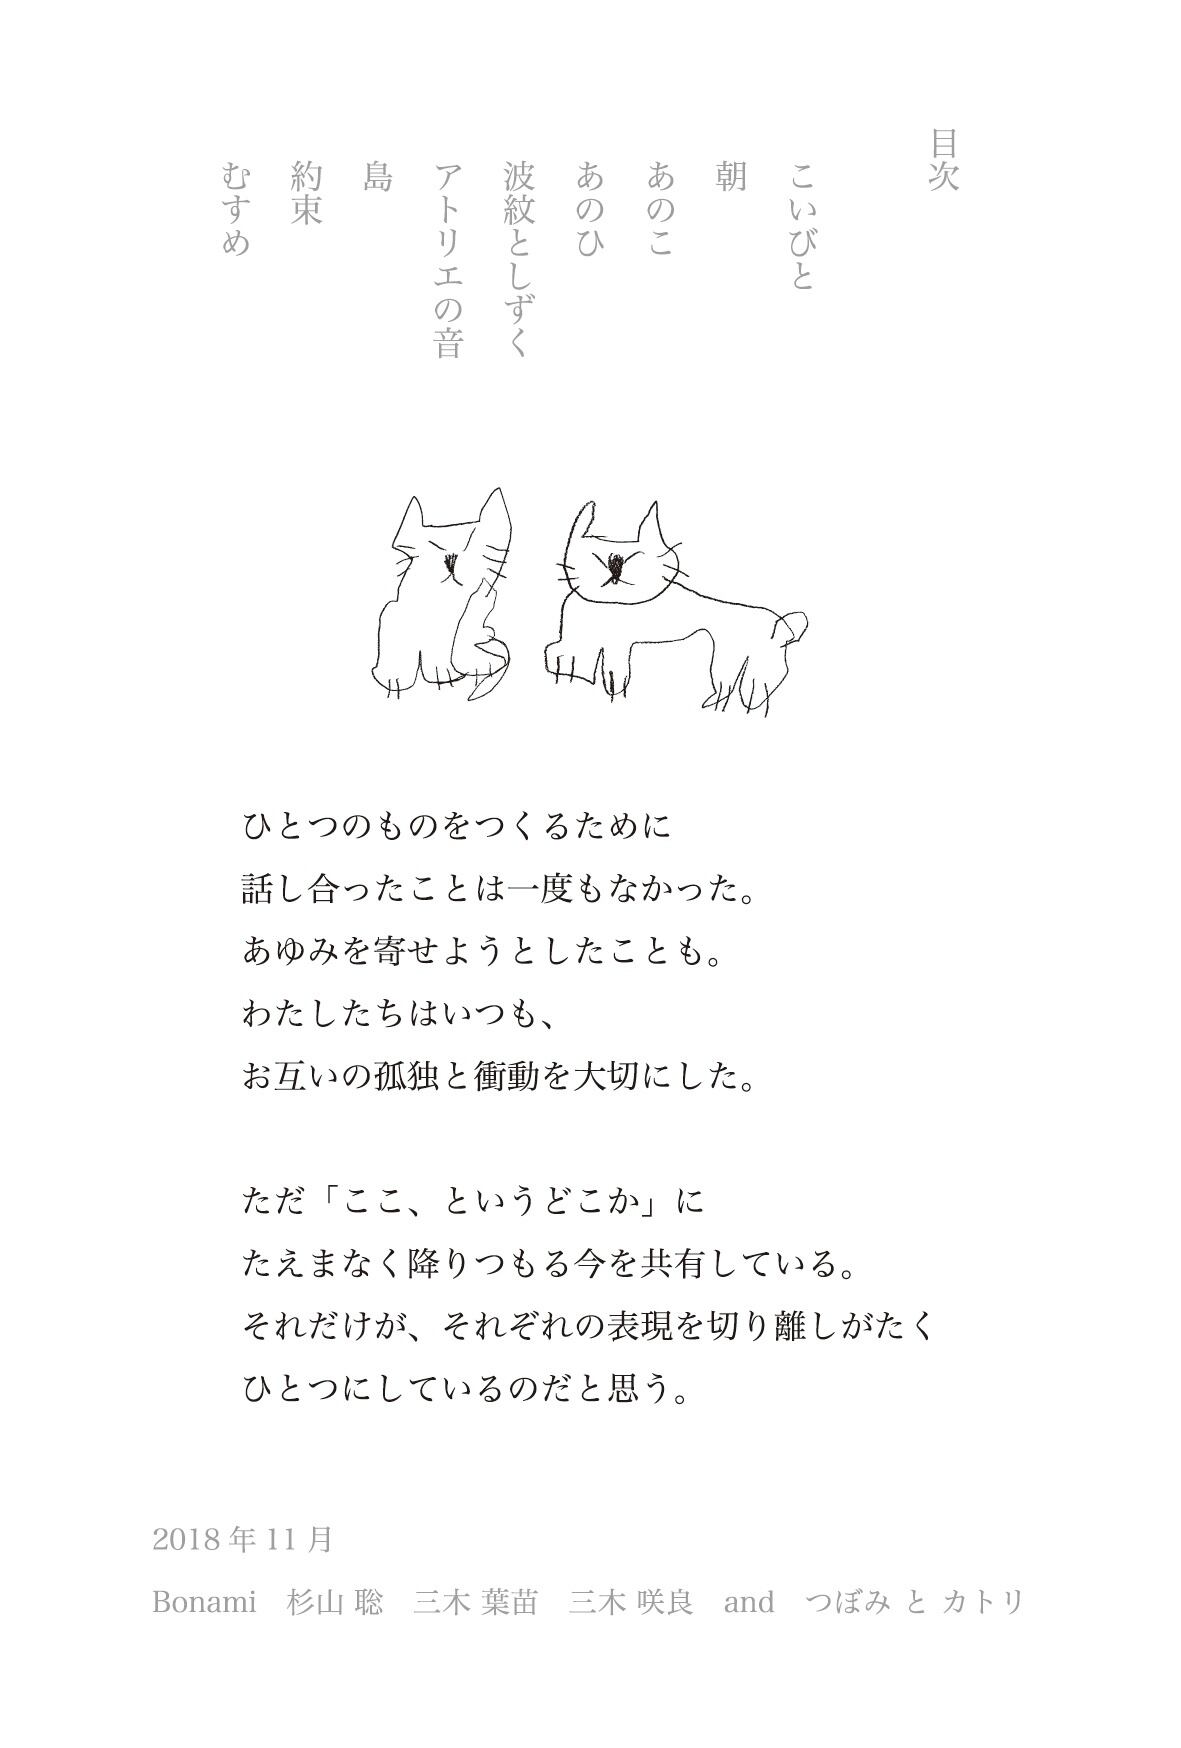 目次
こいびと
朝
あのこ
あのひ
波紋としずく
アトリエの音
島
約束
むすめ
ひとつのものをつくるために
話し合ったことは一度もなかった。
あゆみを寄せようとしたことも。
わたしたちはいつも、
お互いの孤独と衝動を大切にした。
ただ「ここ、というどこか」に
たえまなく降りつもる今を共有している。
それだけが、それぞれの表現を切り離しがたく
ひとつにしているのだと思う。
2018 年 11 月
Bonami　杉山 聡　三木 葉苗　三木 咲良　and　つぼみ と カトリ